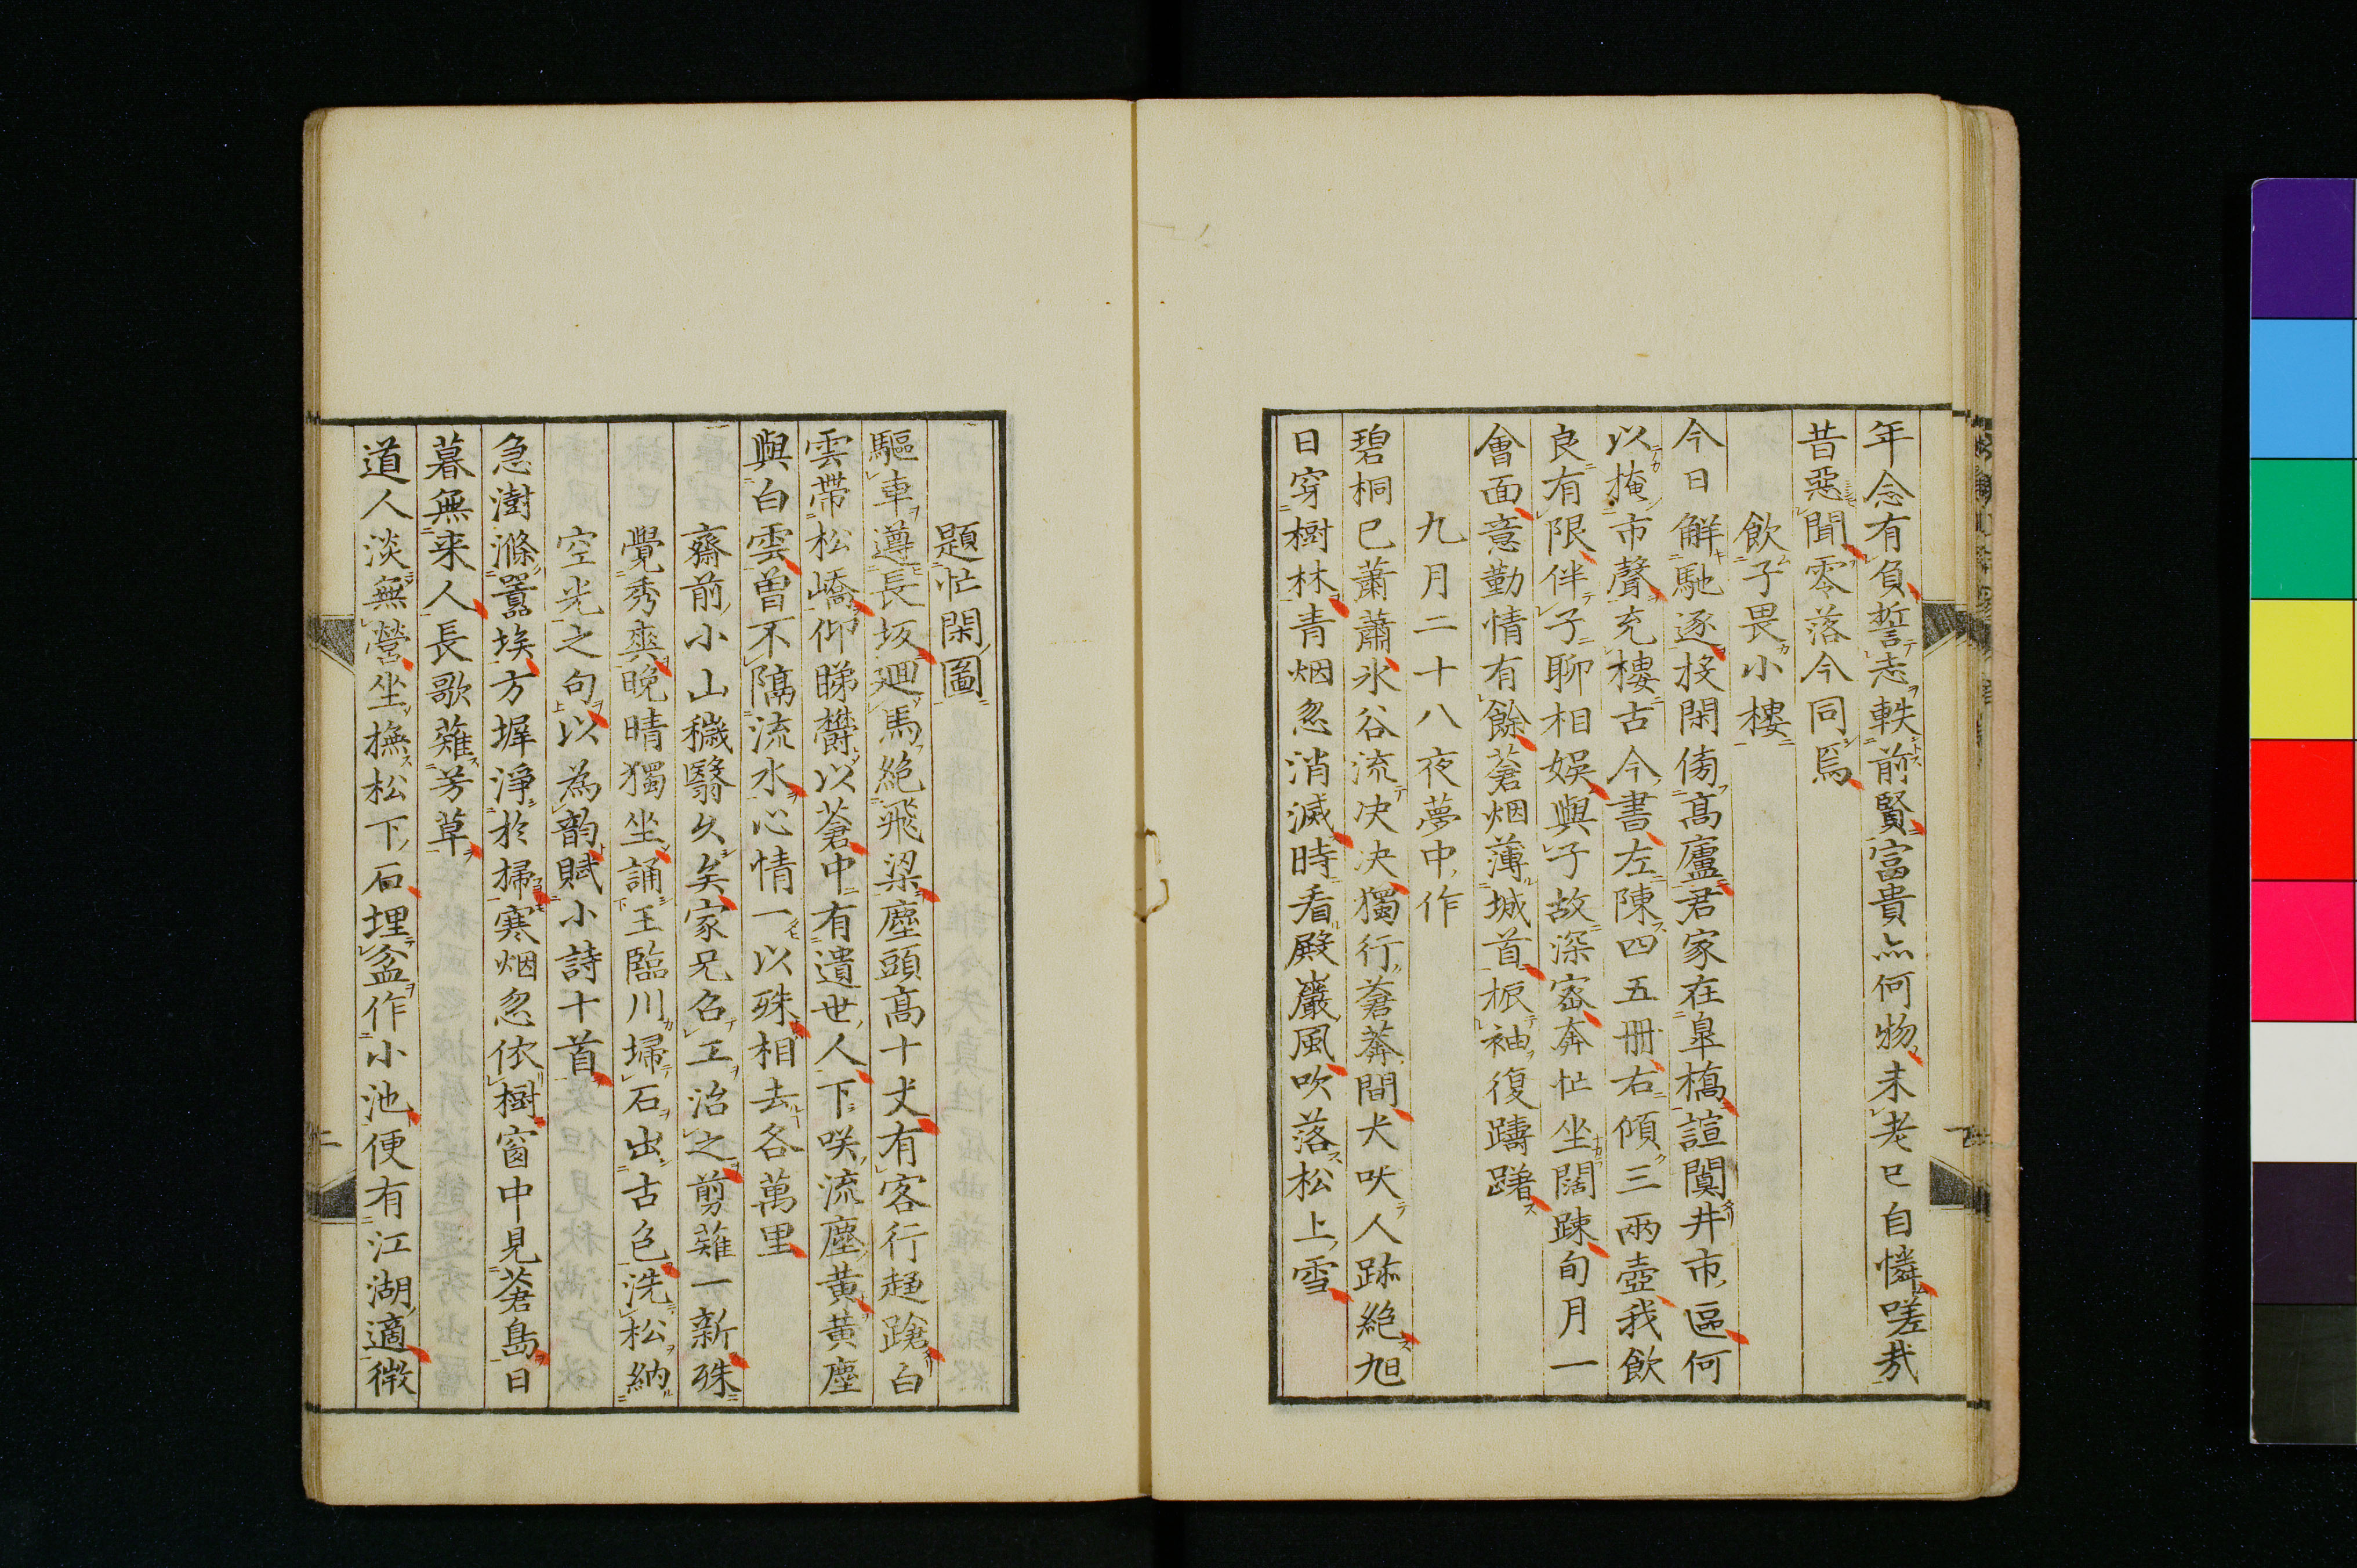 年念有負誓志軼前賢富貴亦何物未老已自憐嗟哉
昔惡聞零落今同焉
飲子畏小樓
今日解馳逐投閑傍髙廬君家在皐橋諠闐井市區何
以掩市聲充樓古今書左陳四五冊右傾三兩壺我飲
良有限伴子聊相娯與子故深密奔忙坐闊踈旬月一
會面意勤情有餘蒼烟薄城首振袖復躊躇
九月二十八夜夢中作
碧桐已蕭蕭氷谷流决决獨行蒼莽間犬吠人跡絶旭
日穿樹林青烟忽消滅時看殿巖風吹落松上雪
題忙閑圖
驅車遵長坂廻馬絶飛梁塵頭髙十丈有客行趨蹌白
雲帶松嶠仰睇欝以蒼中有遺世人下咲流塵黄黄塵
與白雲曽不隔流水心情一以殊相去各萬里
齋前小山穢翳久矣家兄召工治之剪薙一新殊
覺秀爽晩晴獨坐誦王臨川掃石出古色洗松納
空光之句以為韵賦小詩十首
急澍滌囂埃方墀淨於掃寒烟忽依樹窗中見蒼島日
暮無来人長歌薙芳草
道人淡無營坐撫松下石埋盆作小池便有江湖適微
二